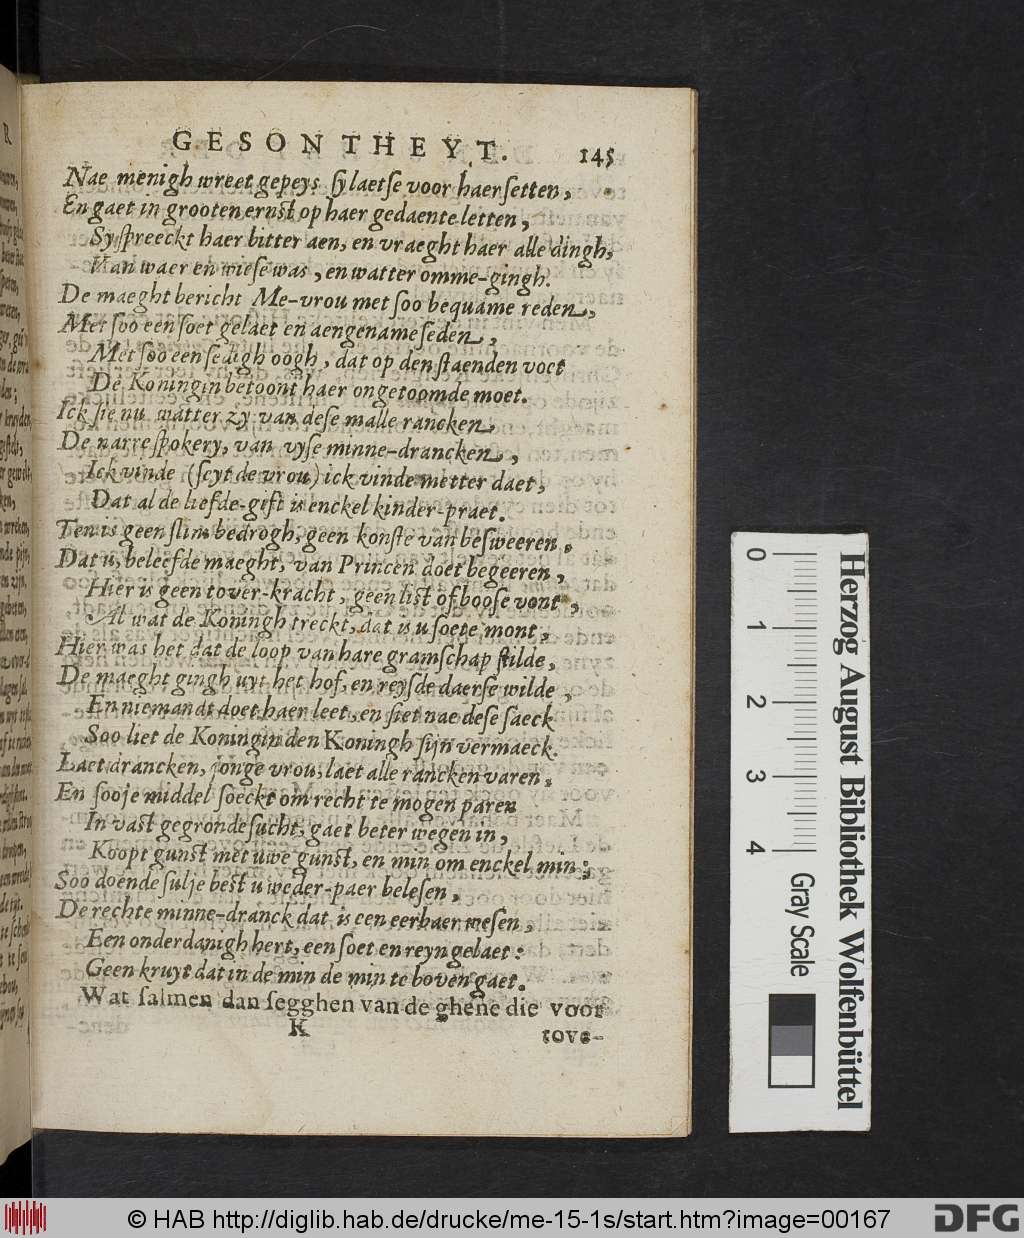 GESONTHEYT. 145
Nae menigh wreet gepeys sy laetse voor haer setten,
En gaet in grooten ernst op haer gedaente letten,
Sy spreeckt haer bitter aen, en vraeght haer alle dingh,
Van waer en wiese was, en watter omme-gingh.
De maeght bericht Me-vrou met soo bequame reden,
Met soo een soet gelaet en aengename seden,
Met soo een sedigh oogh, dat op den staenden voet
De Koningin betoont haer ongetoomde moet.
Ick sie nu watter zy van dese malle rancken,
De narre spokery, van vyse minne-drancken,
Ick vinde (seyt de vrou) ick vinde metter daet,
Dat al de liefde-gift is enckel kinder-praet.
Ten is geen slim bedrogh, geen konste van besweeren,
Dat u, beleefde maeght, van Princen doet begeeren,
Hier is geen tover-kracht, geen list of boose vont,
Al wat de Koningh treckt, dat is u soete mont,
Hier was het dat de loop van hare gramschap stilde,
De maeght gingh uyt het hof, en reysde daerse wilde,
En niemandt doet haer leet, en siet nae dese saeck
Soo liet de Koningin den Koningh sijn vermaeck.
Laet drancken, jonge vrou, laet alle rancken varen,
En sooje middel soeckt om recht te mogen paren
In vast gegronde sucht, gaet beter wegen in,
Koopt gunst met uwe gunst, en min om enckel min;
Soo doende sulje best u weder-paer belesen,
De rechte minne-dranck dat is een eerbaer wesen,
Een onderdanigh hert, een soet en reyn gelaet:
Geen kruyt dat in de min de min te boven gaet.
Wat salmen dan segghen van de ghene die voor
K tove-
Herzog August Bibliothek Wolfenbüttel
0 1 2 3 4
Gray Scale
© HAB http://diglib.hab.de/drucke/me-15-1s/start.htm?image=00167
DFG